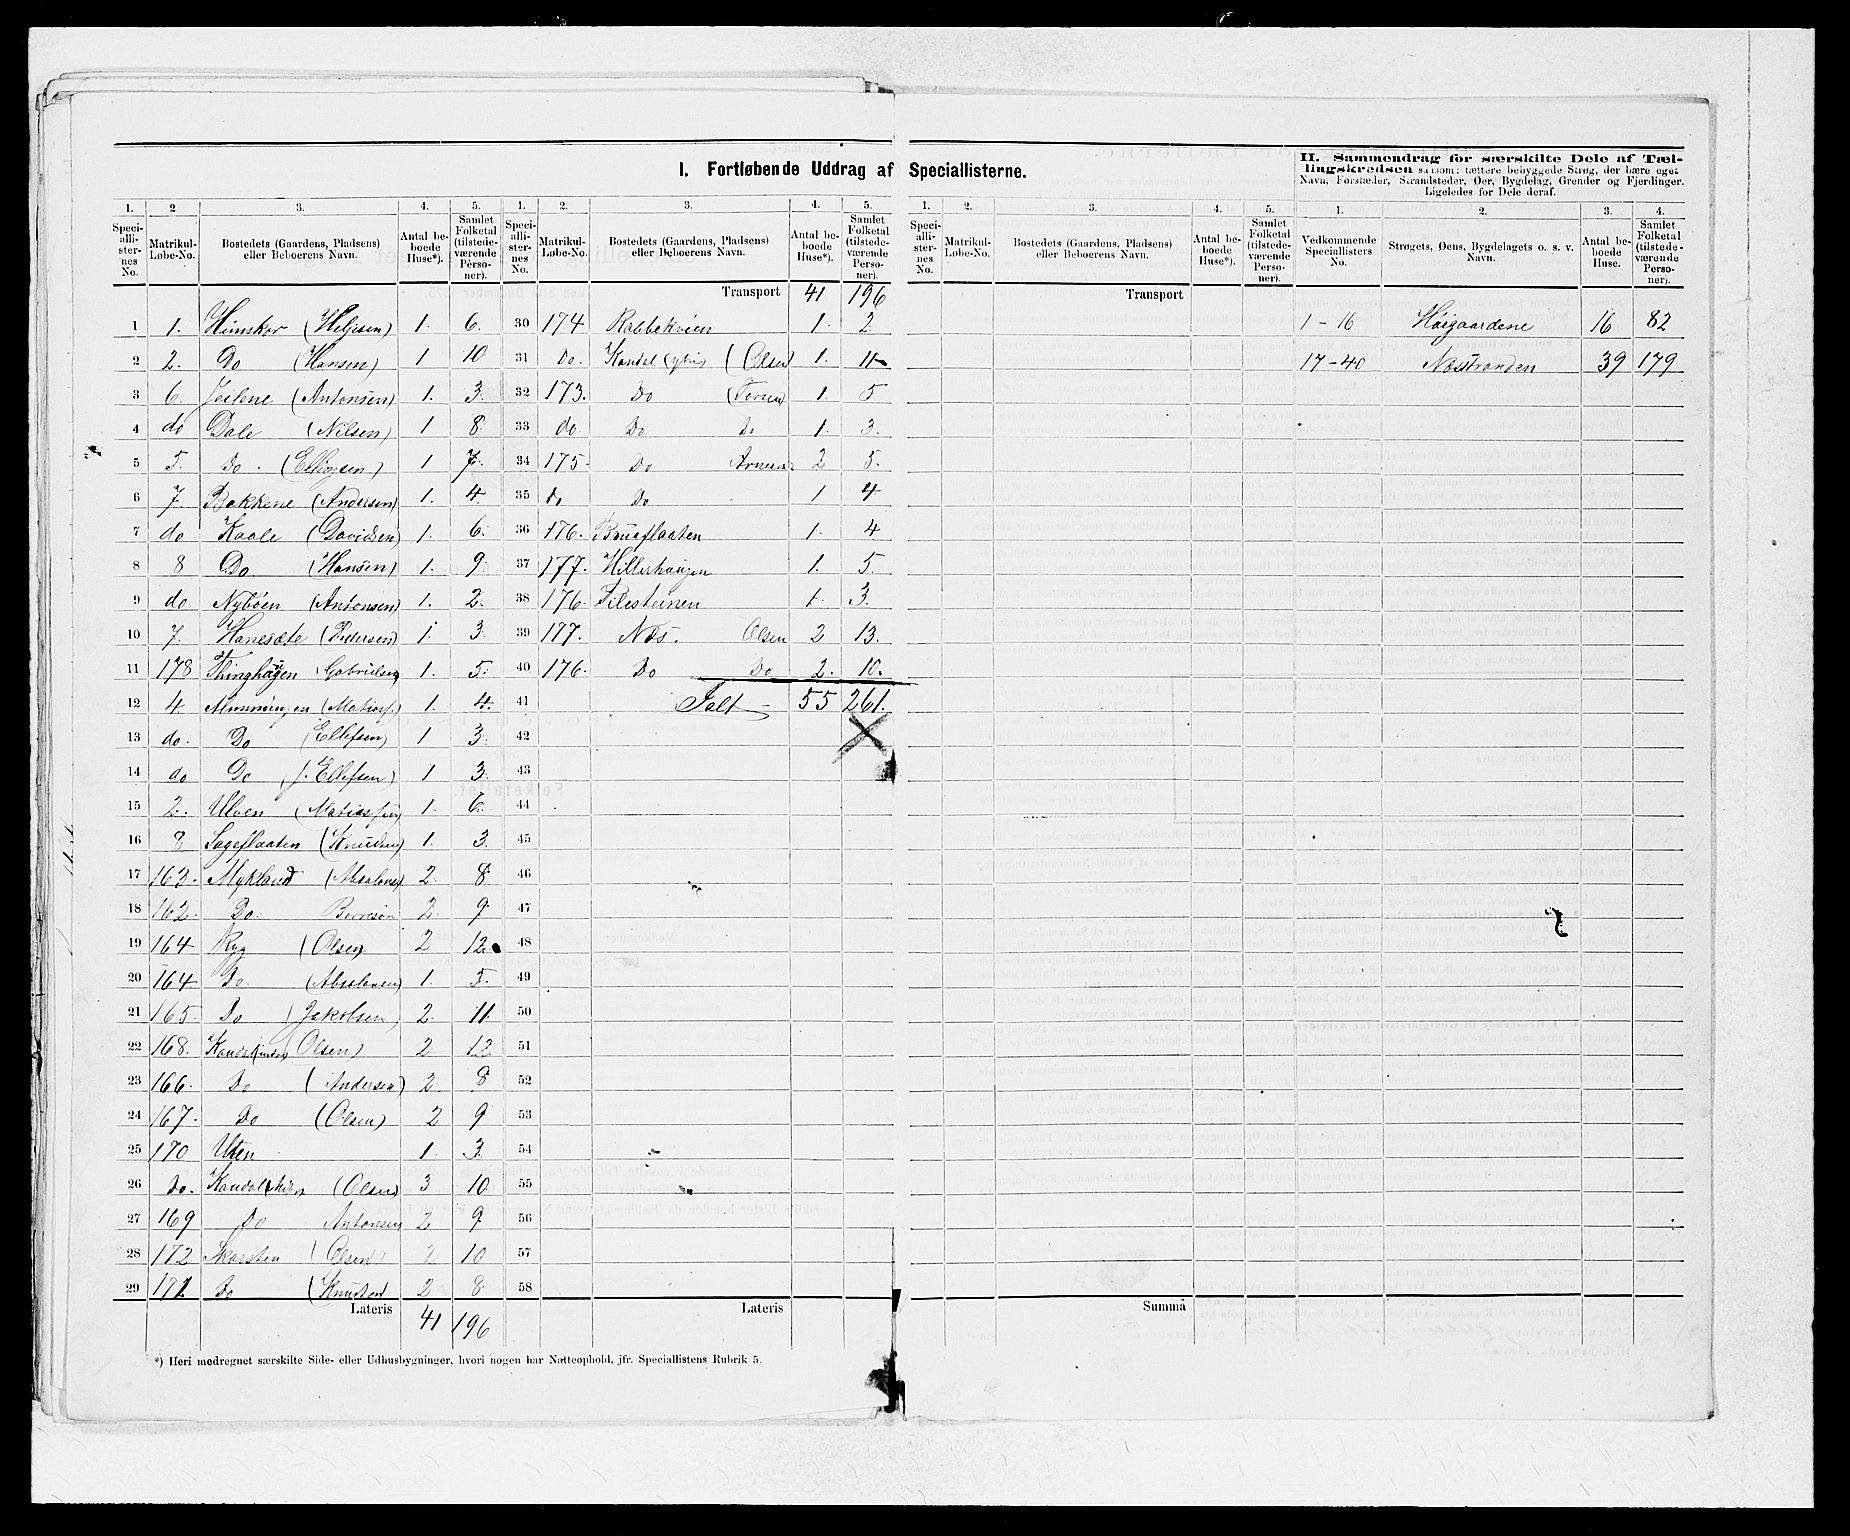 I. Fortløbende Uddrag af Speciallisterne.
1. Speciallisternes No. | 2 Matrikul-Løbe-No. | 3. Bostedets (Gaardens, Pladsens) eller Beboerens Navn. | 4. Antal beboede Huse*). | 5. Samlet Folketal (tilstedeværende Personer).
1 1. Himsker (Heljesen) 1. 6.
2 2. Do (Hansen) 1 10
3 6. (Antonsen) 1. 3.
4 do Dale (Nilsen) 1 8.
5 5. Do. 1 7.
6 7. Bakkene (Andersen) 1. 4.
7 do Kaale (Davidsen) 1. 6.
8 8 Do. (Hansen) 1. 9.
9 do Nybøen (Antonsen) 1. 2.
10 7. Hanesæte (Pedersen) 1. 3.
11 178 Thinghøgen (Gabrielsen 1. 5.
12 4 1. 4.
13 do. Do (Ellefsen) 1 3.
14 do Do (J. Ellefsen) 1 3.
15 2. Ulven 1. 6.
16 8 Sageflaaten (Knudsen) 1. 3.
17 163. Mykland (Absalonsen) 2. 8
18 162. Do. 2. 9.
19 164 Ryg (Olsen) 2 12.
20 164 Do. (Absalonsen) 1. 5.
21 165. Do (Jakobsen) 2. 11.
22 168. Kandal (Olsen) 2 12
23 166. Do (Andersen) 2. 8
24 167. Do (Olsen) 2 9
25 170 1. 3.
26 Do. Kandal (Olsen) 3 10.
27 169 Do Antonsen 2 9
28 172 Skorsten (Olsen) 2 10
29 171 Do (Knudsen 2 8.
Lateris 41 196
1. Speciallisternes No. | 2. Matrikul-Løbe-No. | 3. Bostedets (Gaardens, Pladsens) eller Beboerens Navn. | 4. Antal beboede Huse*). | 5. Samlet Folketal (tilstedeværende Personer).
Transport 41 196
30 174 Rabbekvien 1. 2.
31 Do. Kandal (ytri) (Olsen) 1. 11
32 173. Do 1. 5
33 do. Do Do 1. 3.
34 175. Do Arnesen 2 5.
35 Do Do 1 4
36 176. Bruaflaaten 1. 4
37 177. Hillerhaugen 1. 5.
38 176. Filesteinen 1. 3.
39 177. Næs. Olsen 2 13.
40 176. Do Do 2. 10.
41 Ialt 55 261.
42
43
44
45
46
47
48
49
50
51
52
53
54
55
56
57
58
Lateris
*) Heri medregnet særskilte Side- eller Udhusbygninger, hvori nogen har Natteophold, jfr. Speciallistens Rubrik 5.
1. Speciallisternes No. | 2. Matrikul-Løbe-No. | 3. Bostedets (Gaardens, Pladsens) eller Beboerens Navn. | 4. Antal beboede Huse*). | 5. Samlet Folketal (tilstedeværende Personer).
Transport
Summa
II. Sammendrag for særskilte Dele af Tællingskredsen saasom: tættere bebyggede Strøg, der bære eget Navn, Forstæder, Strandsteder, Øer, Bygdelag, Grender og Fjerdinger. Ligeledes for Dele deraf.
1. Vedkommende Speciallisters No. | 2. Strøgets, Øens, Bygdelagets o. s. v. Navn. | 3. Antal beboede Huse. | 4. Samlet Folketal (tilstedeværende Personer).
1 - 16 Høigaardene 16 82
17 - 40 Næsstranden 39 179